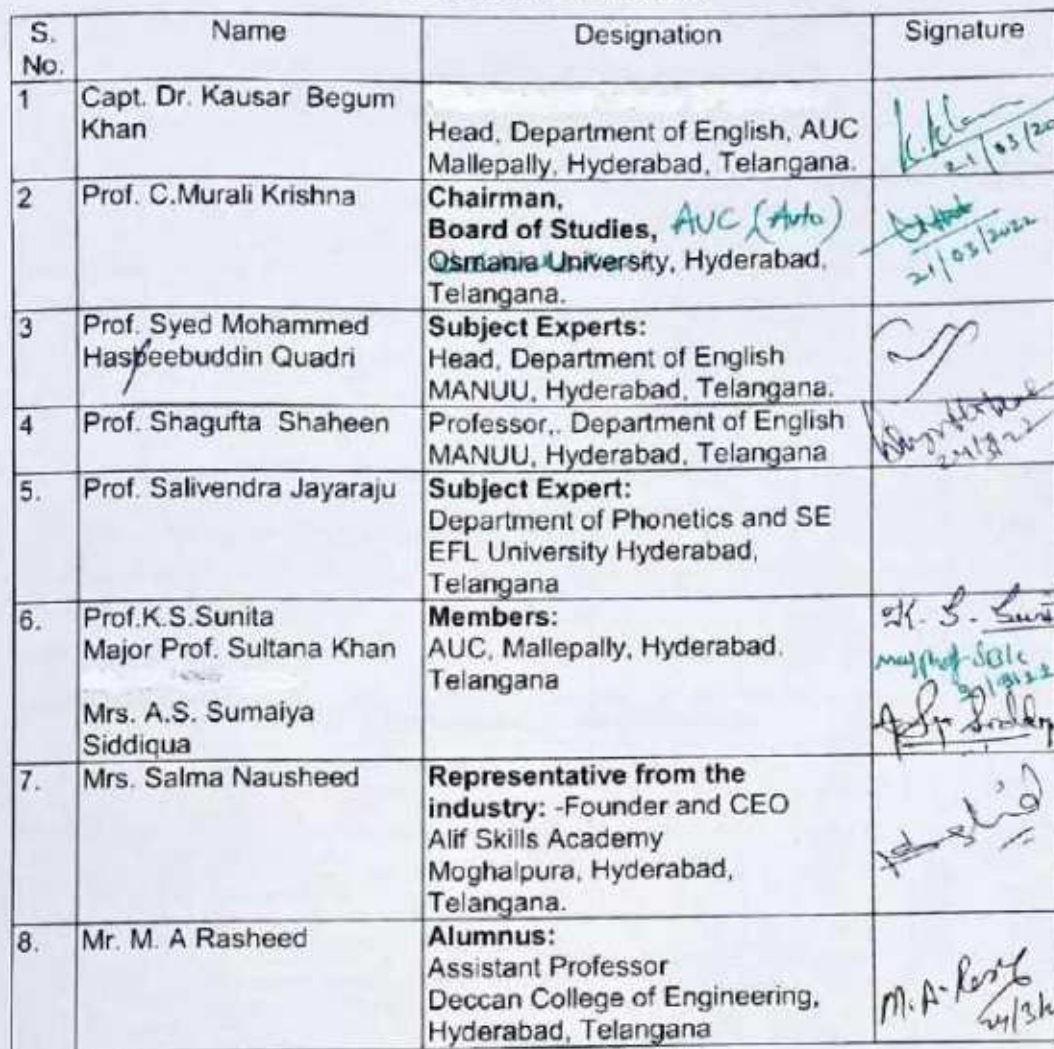 S.
No.
Name
Designation
Signature
1
Capt. Dr. Kausar Begum
Khan
Head, Department of English, AUC
Mallepally, Hyderabad, Telangana.
K.Khan
21/03/20
2
Prof. C.Murali Krishna
Chairman,
Board of Studies, AUC (Auto)
Osmania University, Hyderabad,
Telangana.
21/03/2022
3
Prof. Syed Mohammed
Haspeebuddin Quadri
Subject Experts:
Head, Department of English
MANUU, Hyderabad, Telangana.
4
Prof. Shagufta Shaheen
Professor,. Department of English
MANUU, Hyderabad, Telangana
5.
Prof. Salivendra Jayaraju
Subject Expert:
Department of Phonetics and SE
EFL University Hyderabad,
Telangana
6.
Prof.K.S.Sunita
Major Prof. Sultana Khan
Mrs. A.S. Sumaiya
Siddiqua
Members:
AUC, Mallepally, Hyderabad.
Telangana
K. S.
7.
Mrs. Salma Nausheed
Representative from the
industry: -Founder and CEO
Alif Skills Academy
Moghalpura, Hyderabad,
Telangana.
8.
Mr. M. A Rasheed
Alumnus:
Assistant Professor
Deccan College of Engineering,
Hyderabad, Telangana
M.A-
24/3/